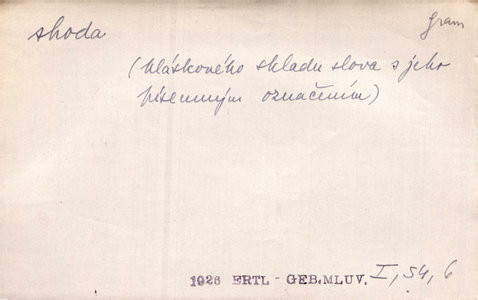 shoda
gram
(hláskového skladu slova s jeho
písemným označením)
1926 ERTL - GEB.MLUV. I, 54, 6